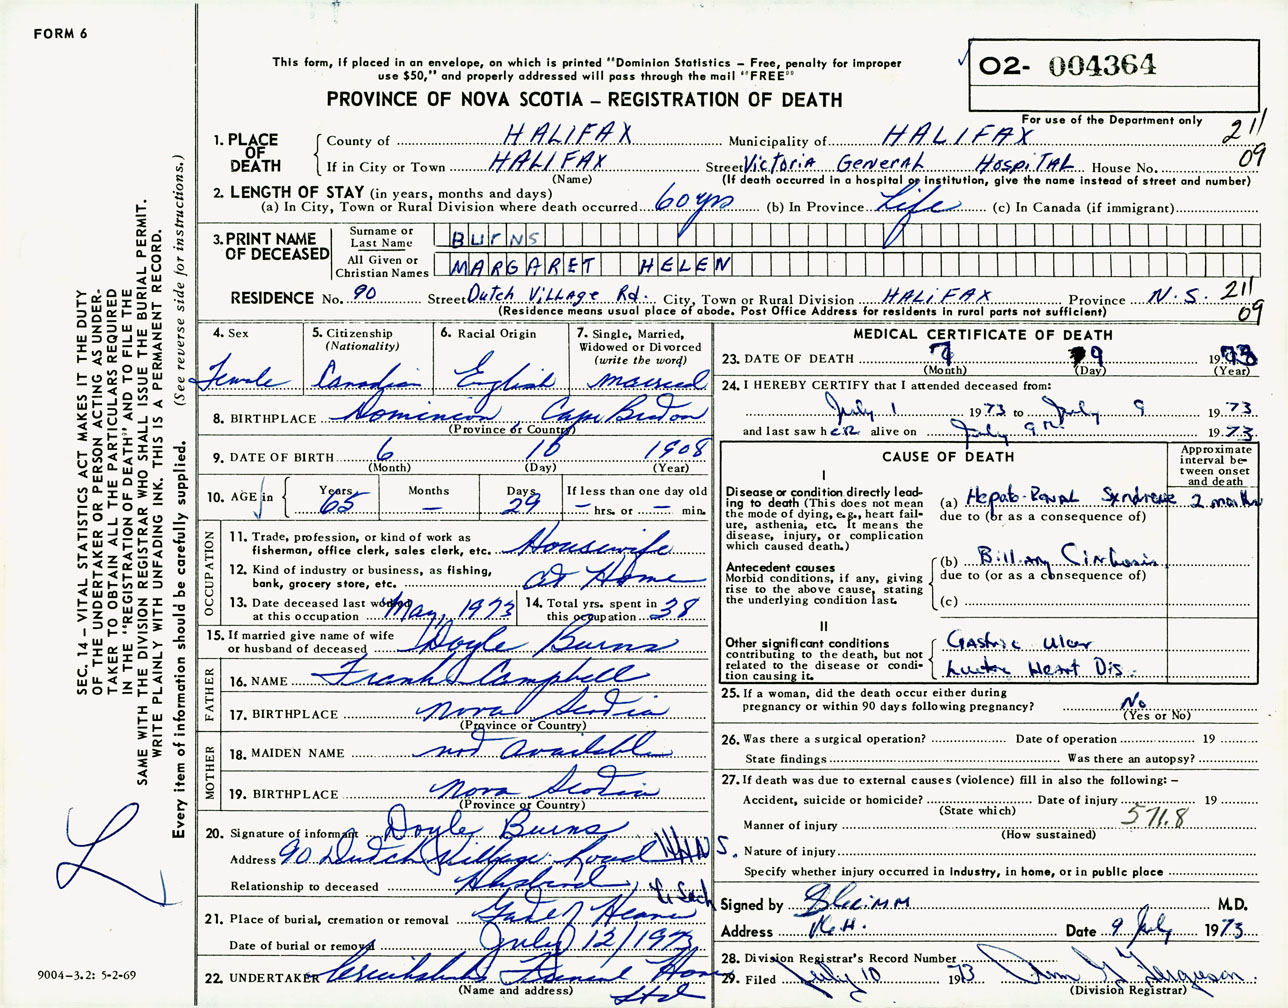 FORM 6
O2- 004364
This form, if placed in an envelope, on which is printed "Dominion Statistics – Free, penalty for improper
use $50," and properly addressed will pass through the mail "FREE"
PROVINCE OF NOVA SCOTIA – REGISTRATION OF DEATH
For use of the Department only
211
09
1. PLACE OF DEATH
County of HALIFAX Municipality of HALIFAX
If in City or Town HALIFAX Street Victoria General Hospital House No.
(Name) (If death occurred in a hospital or institution, give the name instead of street and number)
2. LENGTH OF STAY (in years, months and days)
(a) In City, Town or Rural Division where death occurred 60 yrs (b) In Province Life (c) In Canada (if immigrant)
3. PRINT NAME OF DECEASED
Surname or Last Name BURNS
All Given or Christian Names MARGARET HELEN
RESIDENCE No. 90 Street Dutch Village Rd. City, Town or Rural Division HALIFAX Province N.S. 211
09
(Residence means usual place of abode. Post Office Address for residents in rural parts not sufficient)
4. Sex Female
5. Citizenship (Nationality) Canadian
6. Racial Origin English
7. Single, Married, Widowed or Divorced (write the word) married
8. BIRTHPLACE Dominion Cape Breton
(Province or Country)
9. DATE OF BIRTH 6 10 1908
(Month) (Day) (Year)
10. AGE in Years 65 Months – Days 29 If less than one day old – hrs. or – min.
OCCUPATION
11. Trade, profession, or kind of work as
fisherman, office clerk, sales clerk, etc. Housewife
12. Kind of industry or business, as fishing,
bank, grocery store, etc. at Home
13. Date deceased last worked at this occupation May, 1973
14. Total yrs. spent in this occupation 38
15. If married give name of wife
or husband of deceased Doyle Burns
FATHER
16. NAME Frank Campbell
17. BIRTHPLACE Nova Scotia
(Province or Country)
MOTHER
18. MAIDEN NAME not available
19. BIRTHPLACE Nova Scotia
(Province or Country)
20. Signature of informant Doyle Burns
Address 90 Dutch Village Road
Relationship to deceased Husband
21. Place of burial, cremation or removal
Date of burial or removal July 12/1973
22. UNDERTAKER Funeral Home
(Name and address) Ltd
MEDICAL CERTIFICATE OF DEATH
23. DATE OF DEATH 7 9 1973
(Month) (Day) (Year)
24. I HEREBY CERTIFY that I attended deceased from:
July 1 1973 to July 9 1973
and last saw her alive on July 9th 1973
CAUSE OF DEATH
Approximate interval between onset and death
I
Disease or condition directly leading to death (This does not
mean the mode of dying, e.g., heart failure, asthenia, etc. It means the
disease, injury, or complication
which caused death.)
(a) Hepato-Renal Syndrome 2 months
due to (or as a consequence of)
Antecedent causes
Morbid conditions, if any, giving
rise to the above cause, stating
the underlying condition last.
(b) Biliary Cirrhosis
due to (or as a consequence of)
(c)
II
Other significant conditions
contributing to the death, but not
related to the disease or condition
causing it.
Gastric Ulcer
Heart Dis.
25. If a woman, did the death occur either during
pregnancy or within 90 days following pregnancy? No
(Yes or No)
26. Was there a surgical operation? Date of operation 19
State findings Was there an autopsy?
27. If death was due to external causes (violence) fill in also the following: –
Accident, suicide or homicide? Date of injury 19
(State which)
Manner of injury 571.8
(How sustained)
Nature of injury
Specify whether injury occurred in Industry, in home, or in public place
Signed by M.D.
Address Date 9 July 1973
28. Division Registrar's Record Number
29. Filed July 10 1973
(Division Registrar)
SEC. 14 – VITAL STATISTICS ACT MAKES IT THE DUTY
OF THE UNDERTAKER OR PERSON ACTING AS UNDER-
TAKER TO OBTAIN ALL THE PARTICULARS REQUIRED
IN THE "REGISTRATION OF DEATH" AND TO FILE THE
SAME WITH THE DIVISION REGISTRAR WHO SHALL ISSUE THE BURIAL PERMIT.
WRITE PLAINLY WITH UNFADING INK. THIS IS A PERMANENT RECORD.
Every item of information should be carefully supplied. (See reverse side for instructions.)
9004–3.2: 5-2-69